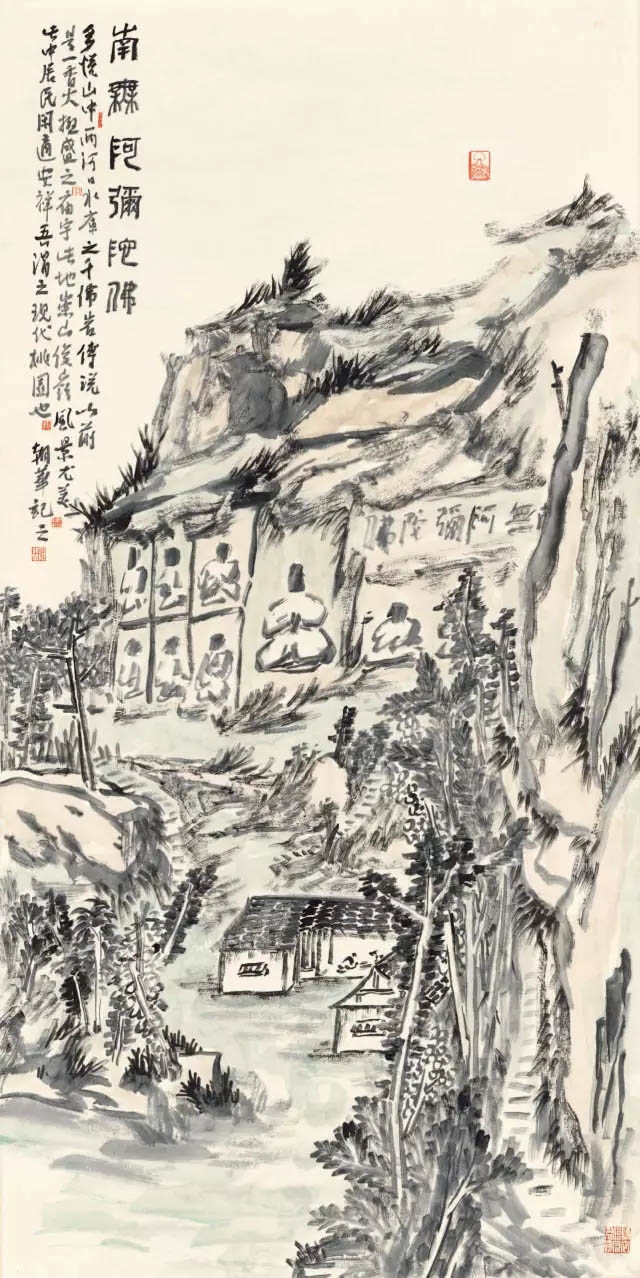 南無阿彌陀佛
山中两河口水庫之千佛岩傳説以前
是一香火極盛之庙宇此地崇山俊嶺風景尤美
此中居民閑適安祥吾謂之現代桃園也 朝華記之
無阿彌陀佛